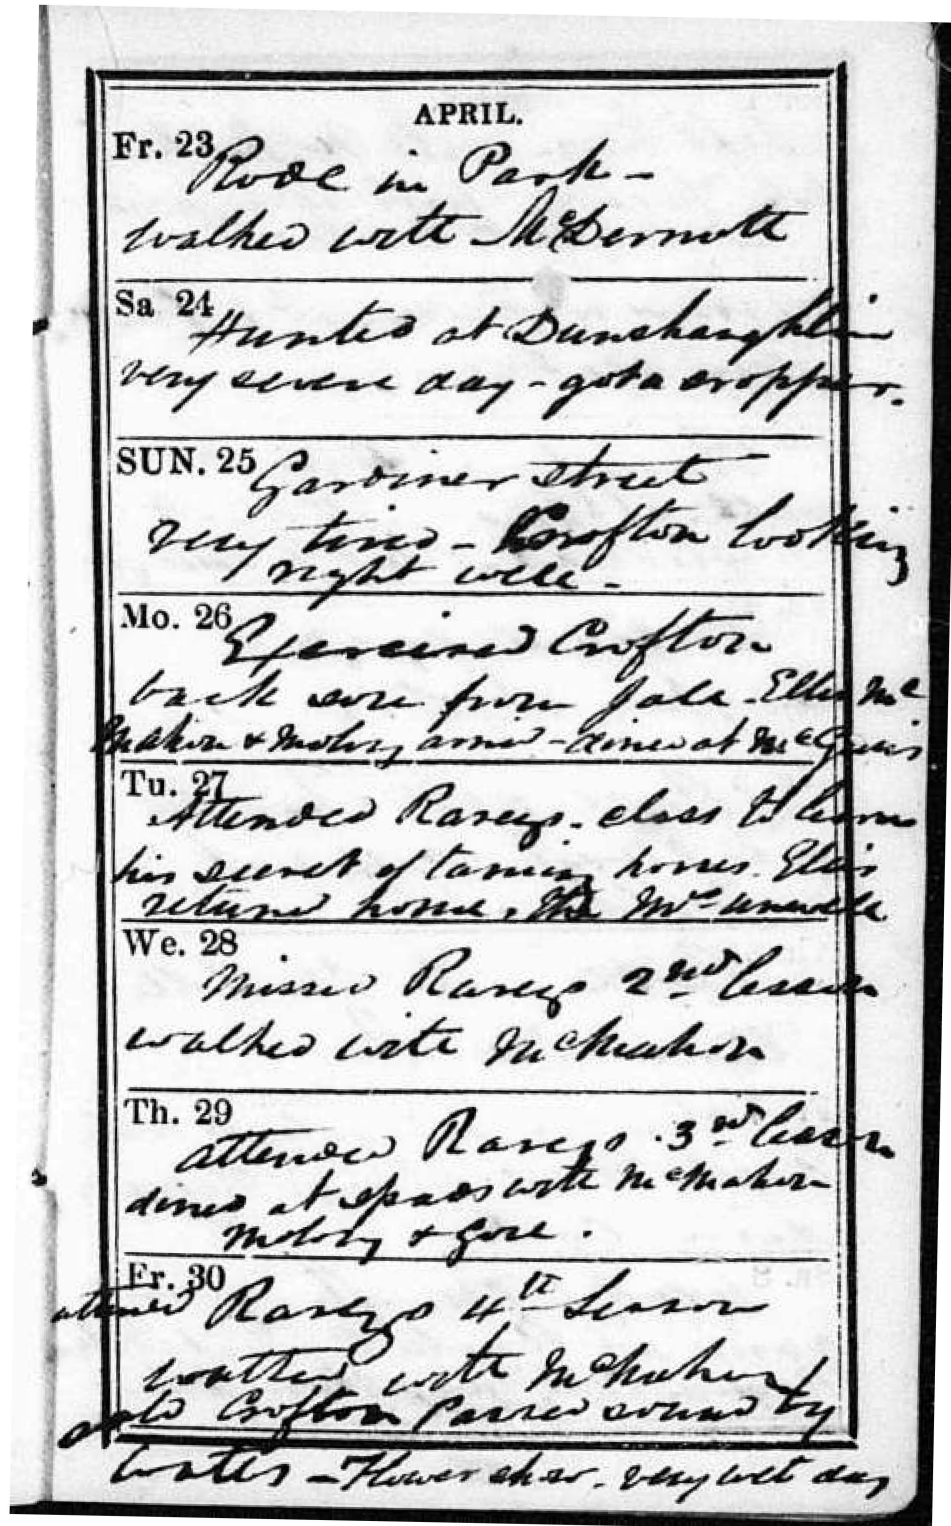 APRIL.
Fr. 23
Rode in Park -
walked with McDermott
Sa 24
Hunted at Dunshaughlin
very severe day - got a cropper.
SUN. 25
Gardiner street
very tired - Crofton looking
right well -
Mo. 26
Exercised Crofton
back sore from fall - Ellis Mc
Mahon & Molony arrived - dined at
Tu. 27
Attended Rareys class to learn
his secret of taming horses. Ellis
returned home, The unwell
We. 28
Missed Rareys 2nd lesson
walked with McMahon
Th. 29
attended Rareys 3rd lesson
dined at with McMahon
Molony & Gore.
Fr. 30
attened Rareys 4th Lesson
walked with McMahon
sold Crofton Passed sound by
Watts - Flower show. very wet day